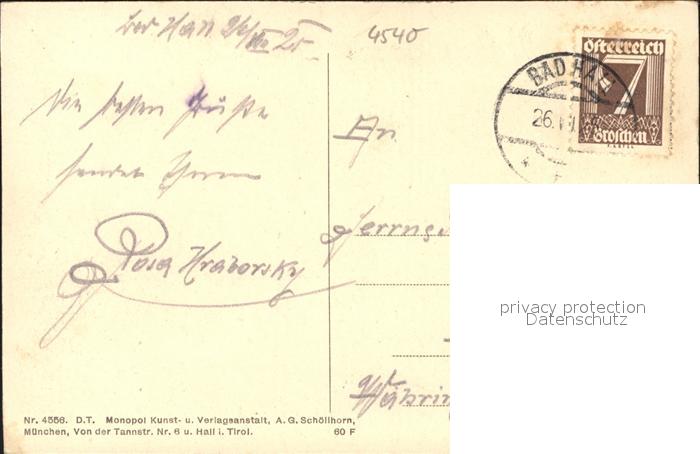 Bad Hall 26/VII 25
4540
Die besten Grüße
sendet Ihnen
Rosa Hraborsky
An
Herrn
Währin
Österreich
7
Groschen
BAD HALL
26.
privacy protection
Datenschutz
Nr. 4556. D.T. Monopol Kunst- u. Verlagsanstalt, A. G. Schöllhorn,
München, Von der Tannstr. Nr. 6 u. Hall i. Tirol. 60 F